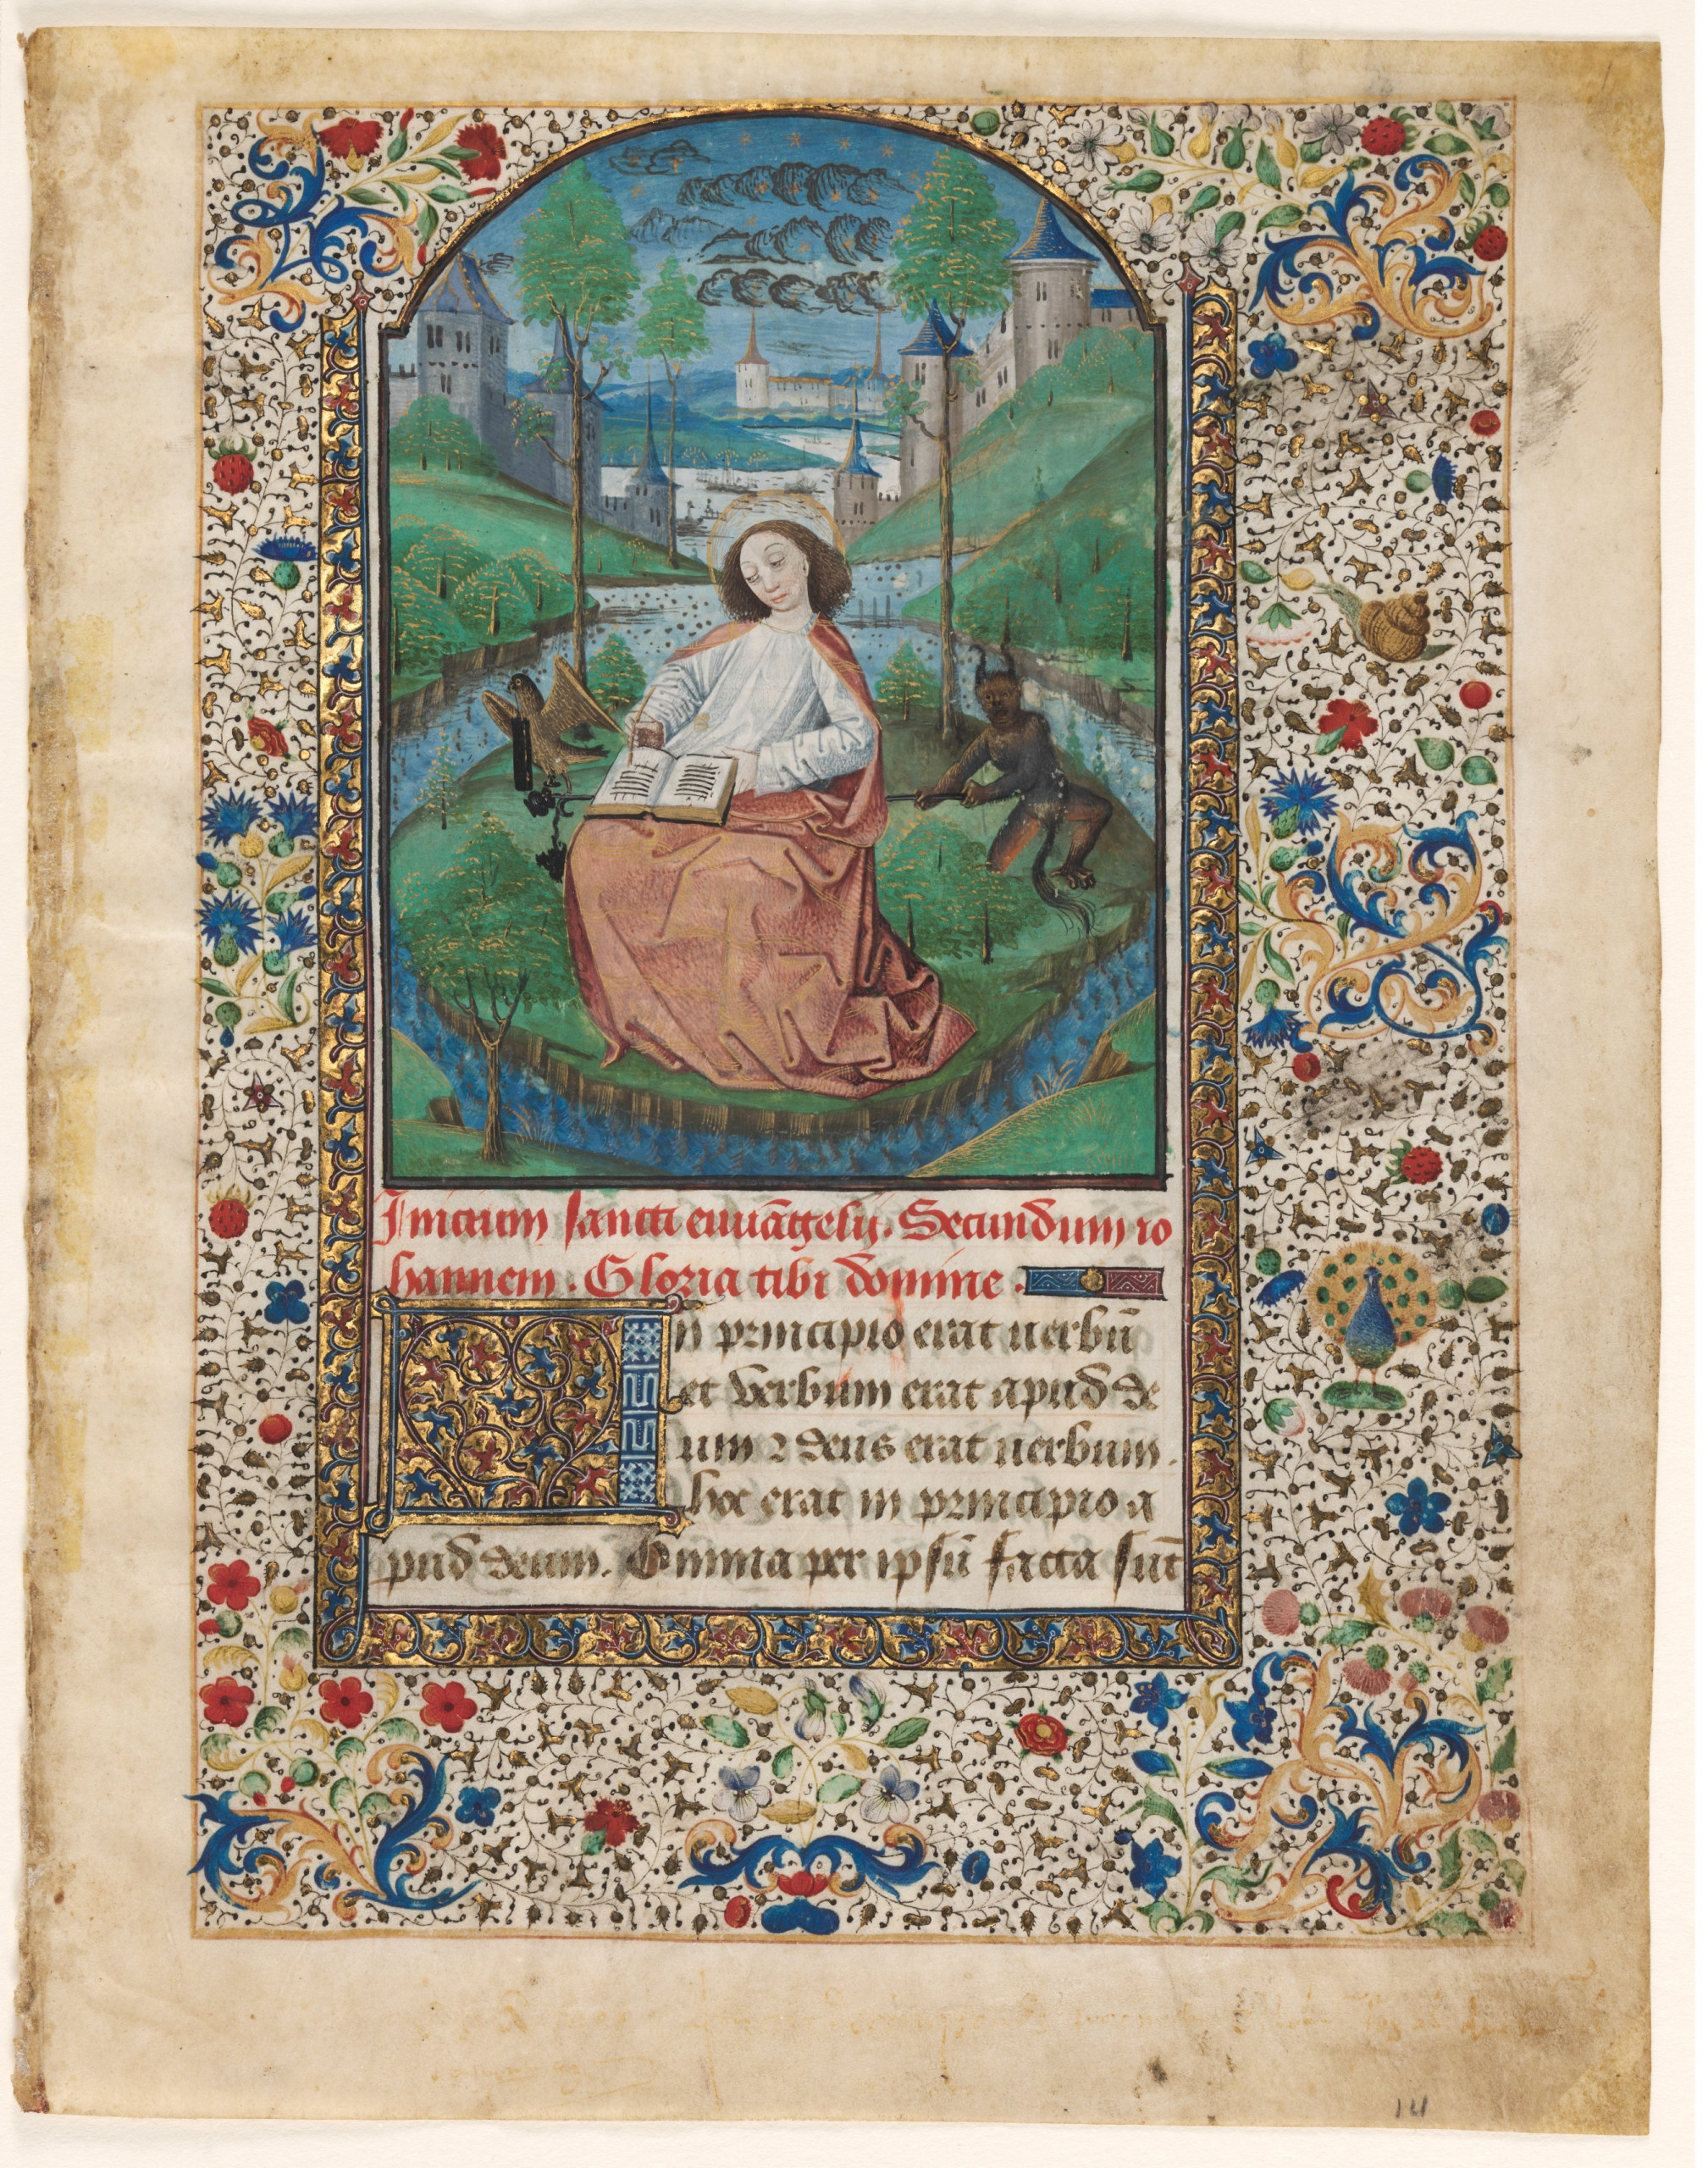 Inicium sancti euuāgelij. Secundum io
hannem. Gloria tibi domine.
In principio erat uerbū
et verbum erat apud de
um ⁊ deus erat uerbum.
hoc erat in principio a
pud deum. Omnia per ipsū facta sūt
14